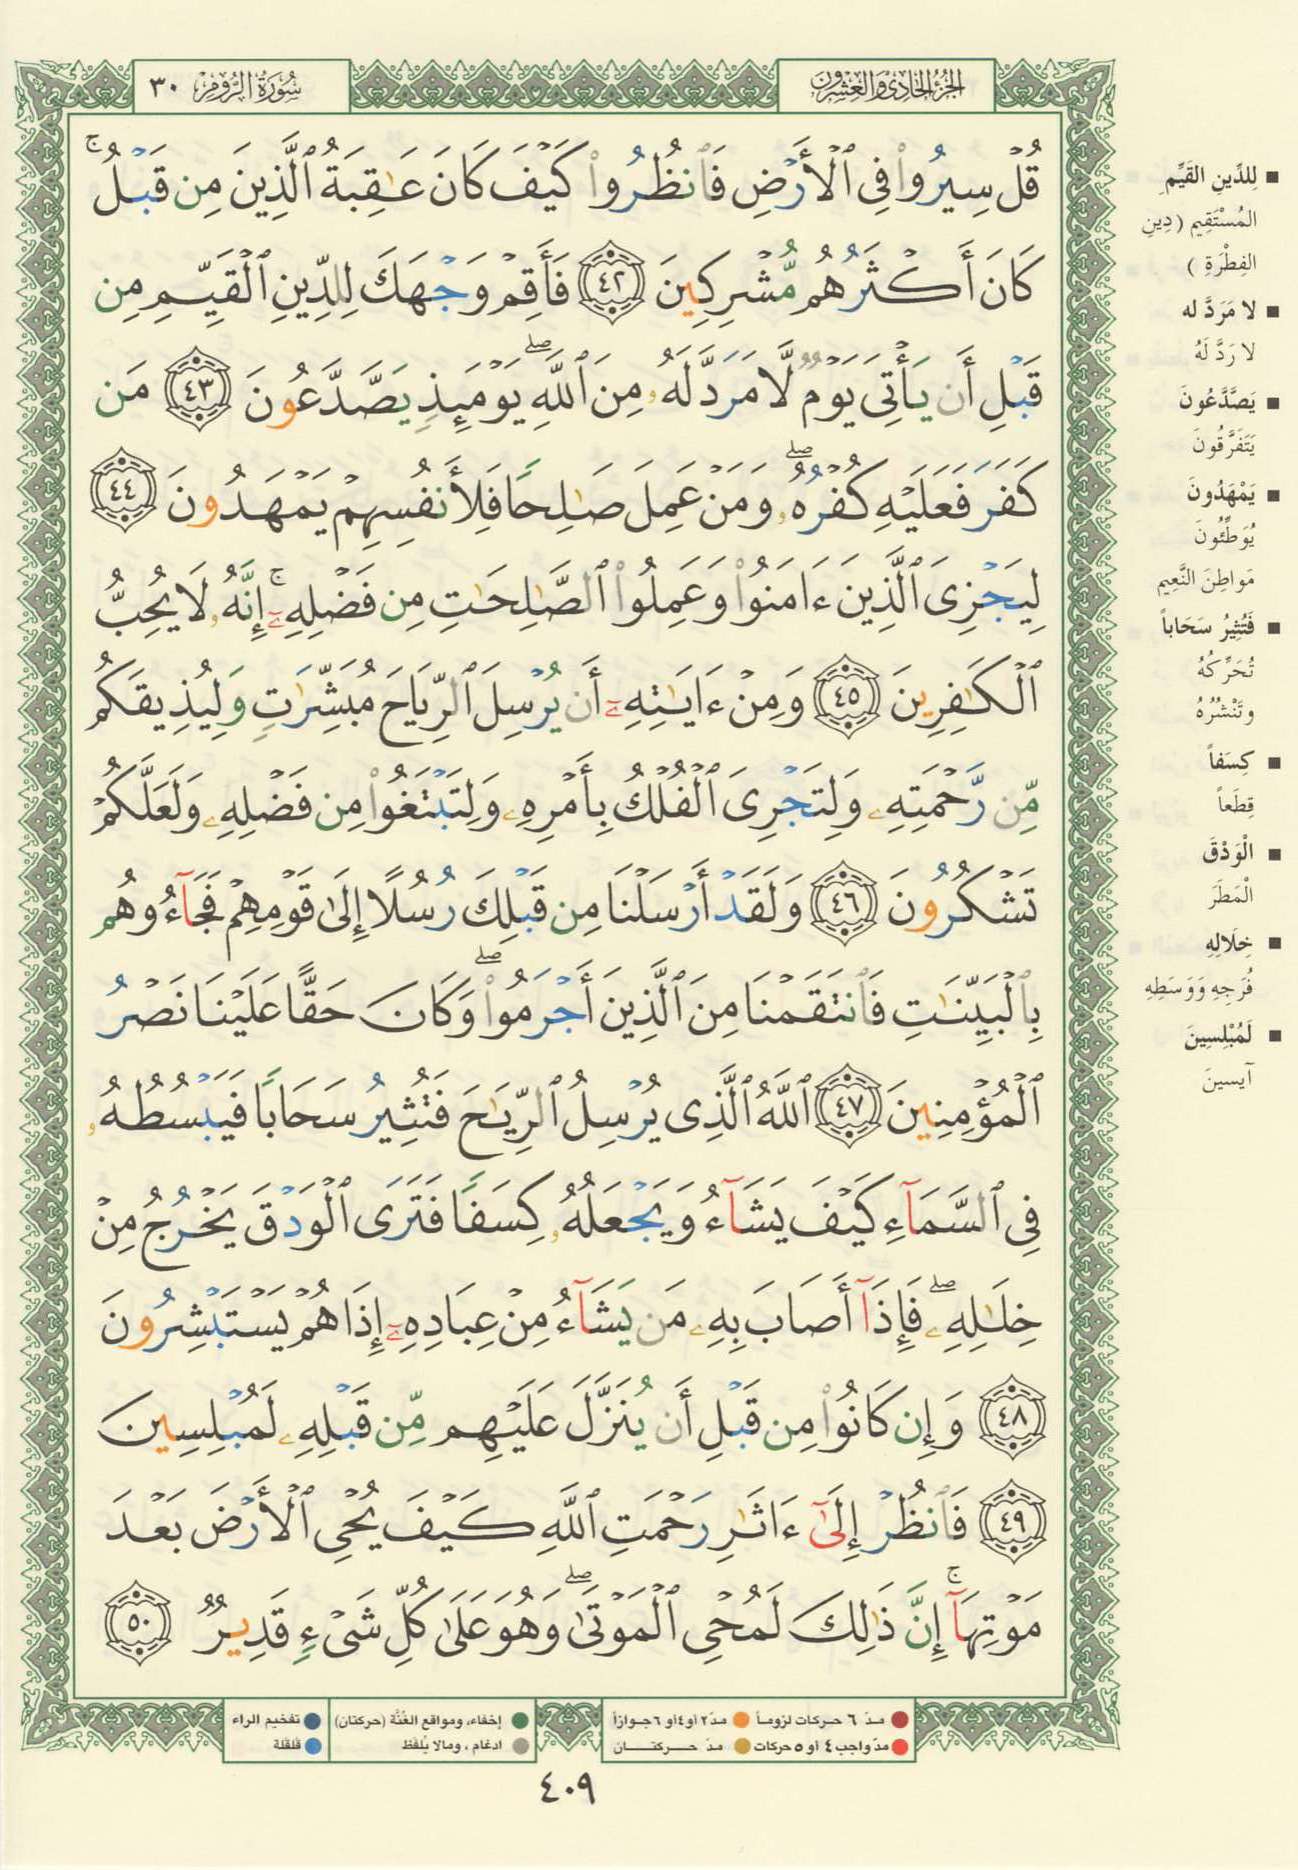 سُورَةُ الرُّومِ ٣٠
الجُزْءُ الحَادِي وَالعِشْرُونَ
قُلْ سِيرُوا۟ فِى ٱلْأَرْضِ فَٱنظُرُوا۟ كَيْفَ كَانَ عَـٰقِبَةُ ٱلَّذِينَ مِن قَبْلُ ۚ
كَانَ أَكْثَرُهُم مُّشْرِكِينَ ٤٢ فَأَقِمْ وَجْهَكَ لِلدِّينِ ٱلْقَيِّمِ مِن
قَبْلِ أَن يَأْتِىَ يَوْمٌ لَّا مَرَدَّ لَهُۥ مِنَ ٱللَّهِ ۖ يَوْمَئِذٍ يَصَّدَّعُونَ ٤٣ مَن
كَفَرَ فَعَلَيْهِ كُفْرُهُۥ ۖ وَمَنْ عَمِلَ صَـٰلِحًا فَلِأَنفُسِهِمْ يَمْهَدُونَ ٤٤
لِيَجْزِىَ ٱلَّذِينَ ءَامَنُوا۟ وَعَمِلُوا۟ ٱلصَّـٰلِحَـٰتِ مِن فَضْلِهِۦٓ ۚ إِنَّهُۥ لَا يُحِبُّ
ٱلْكَـٰفِرِينَ ٤٥ وَمِنْ ءَايَـٰتِهِۦٓ أَن يُرْسِلَ ٱلرِّيَاحَ مُبَشِّرَٰتٍ وَلِيُذِيقَكُم
مِّن رَّحْمَتِهِۦ وَلِتَجْرِىَ ٱلْفُلْكُ بِأَمْرِهِۦ وَلِتَبْتَغُوا۟ مِن فَضْلِهِۦ وَلَعَلَّكُمْ
تَشْكُرُونَ ٤٦ وَلَقَدْ أَرْسَلْنَا مِن قَبْلِكَ رُسُلًا إِلَىٰ قَوْمِهِمْ فَجَآءُوهُم
بِٱلْبَيِّنَـٰتِ فَٱنتَقَمْنَا مِنَ ٱلَّذِينَ أَجْرَمُوا۟ ۖ وَكَانَ حَقًّا عَلَيْنَا نَصْرُ
ٱلْمُؤْمِنِينَ ٤٧ ٱللَّهُ ٱلَّذِى يُرْسِلُ ٱلرِّيَـٰحَ فَتُثِيرُ سَحَابًا فَيَبْسُطُهُۥ
فِى ٱلسَّمَآءِ كَيْفَ يَشَآءُ وَيَجْعَلُهُۥ كِسَفًا فَتَرَى ٱلْوَدْقَ يَخْرُجُ مِنْ
خِلَـٰلِهِۦ ۖ فَإِذَآ أَصَابَ بِهِۦ مَن يَشَآءُ مِنْ عِبَادِهِۦٓ إِذَا هُمْ يَسْتَبْشِرُونَ
٤٨ وَإِن كَانُوا۟ مِن قَبْلِ أَن يُنَزَّلَ عَلَيْهِم مِّن قَبْلِهِۦ لَمُبْلِسِينَ
٤٩ فَٱنظُرْ إِلَىٰٓ ءَاثَـٰرِ رَحْمَتِ ٱللَّهِ كَيْفَ يُحْىِ ٱلْأَرْضَ بَعْدَ
مَوْتِهَآ ۚ إِنَّ ذَٰلِكَ لَمُحْىِ ٱلْمَوْتَىٰ ۖ وَهُوَ عَلَىٰ كُلِّ شَىْءٍ قَدِيرٌ ٥٠
■ لِلدِّينِ القَيِّمِ
المُسْتَقِيمِ (دِينِ
الفِطْرَةِ)
■ لا مَرَدَّ له
لا رَدَّ لَهُ
■ يَصَّدَّعُونَ
يَتَفَرَّقُونَ
■ يَمْهَدُونَ
يُوَطِّئُونَ
مَواطِنَ النَّعِيم
■ فَتُثِيرُ سَحَاباً
تُحَرِّكُهُ
وتَنْشُرُهُ
■ كِسَفاً
قِطَعاً
■ الْوَدْقَ
الْمَطَرَ
■ خِلَالِهِ
فُرَجِهِ وَوَسَطِهِ
■ لَمُبْلِسِينَ
آيسينَ
مدّ ٦ حركات لزوماً مدّ ٢ أو ٤ أو ٦ جوازاً
مدّ واجب ٤ أو ٥ حركات مدّ حركتان
إخفاء، ومواقع الغُنَّة (حركتان) تفخيم الراء
ادغام، ومالا يُلفَظ قلقلة
٤٠٩